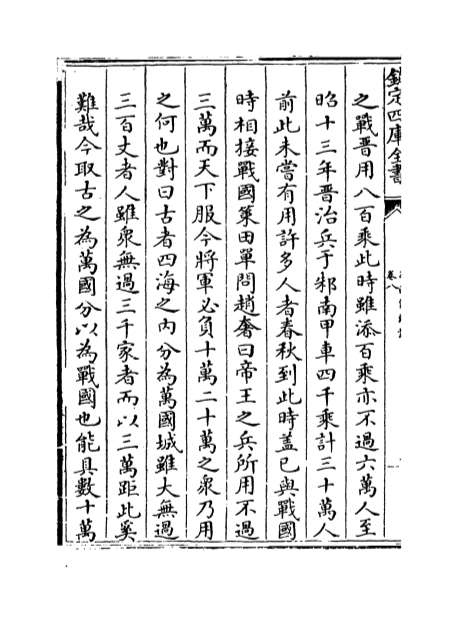 欽定四庫全書
卷八
之戰晉用八百乘此時雖添百乘亦不過六萬人至
昭十三年晉治兵于邾南甲車四千乘計三十萬人
前此未嘗有用許多人者春秋到此時蓋已與戰國
時相接戰國策田單問趙奢曰帝王之兵所用不過
三萬而天下服今將軍必負十萬二十萬之衆乃用
之何也對曰古者四海之內分為萬國城雖大無過
三百丈者人雖衆無過三千家者而以三萬距此奚
難哉今取古之為萬國分以為戰國也能具數十萬